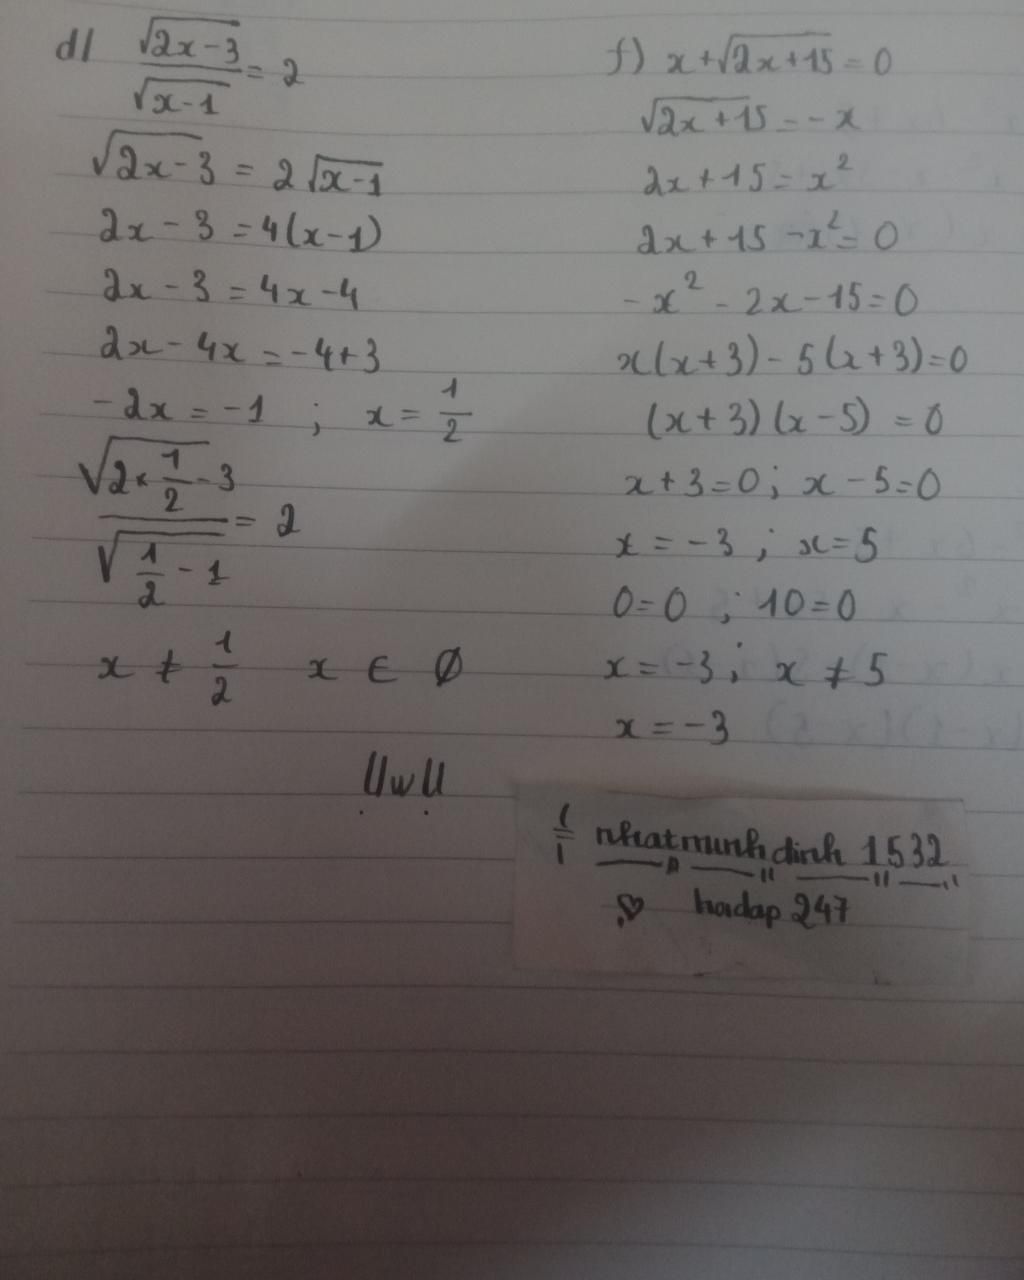 d) √(2x-3)/√(x-1) = 2
√(2x-3) = 2√(x-1)
2x - 3 = 4(x-1)
2x - 3 = 4x - 4
2x - 4x = -4+3
-2x = -1 ; x = 1/2
√(2×1/2-3)/√(1/2-1) = 2
x ≠ 1/2 x ∈ ∅
UwU
f) x+√(2x+15) = 0
√(2x+15) = -x
2x+15 = x²
2x+15-x² = 0
-x² - 2x-15=0
x(x+3) - 5(x+3)=0
(x+3)(x-5) = 0
x+3=0; x-5=0
x = -3 ; x=5
0=0 ; 10=0
x = -3; x ≠ 5
x = -3
nhatminhdinh 1532
hoidap 247